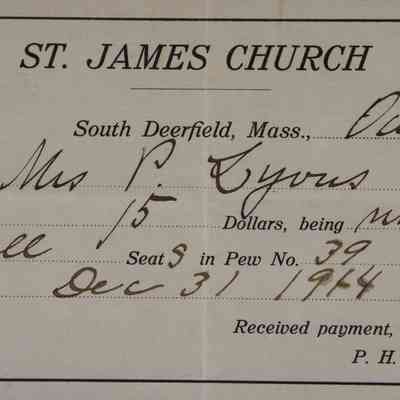 ST. JAMES CHURCH
South Deerfield, Mass.,
Mrs P. Lyons
15 Dollars, being
Seats in Pew No. 39
Dec 31 1914
Received payment,
P. H.